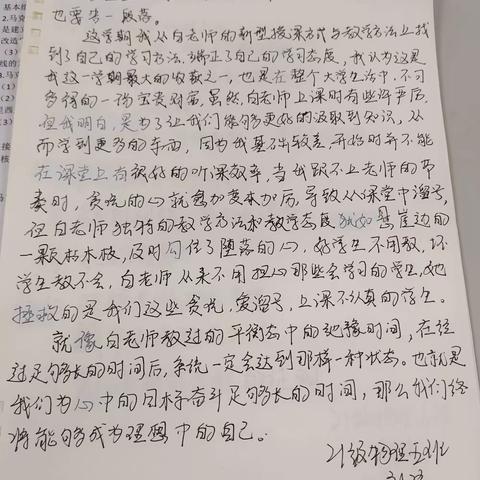 基本
2.马克
是建
改造"
(3)
线的
3.马
(1)
(2)
是西
接
核
也要告一段落。
这学期我从白老师的新型授课方式与教学方法上找
到了自己的学习方法,端正了自己的学习态度,我认为这是
我这一学期最大的收获之一,也是在整个大学生活中,不可
多得的一份宝贵财富。虽然,白老师上课时有些许严厉,
但我明白,是为了让我们能够更好的汲取到知识,从
而学到更多的东西,因为我基础较差,开始时并不能
在课堂上有很好的听课效率,当我跟不上老师的节
奏时,贪玩的心就愈加变本加厉,导致从课堂中溜号,
但白老师独特的教学方法和教学态度犹如悬崖边的
一颗枯木枝,及时勾住了堕落的心,好学生不用教,坏
学生教不会,白老师从来不用担心那些会学习的学生,她
拯救的是我们这些贪玩,爱溜号,上课不认真的学生。
就像白老师教过的平衡态中的弛豫时间,在经
过足够长的时间后,系统一定会达到那样一种状态。也就是
我们为心中的目标奋斗足够长的时间,那么我们终
将能够成为理想中的自己。
21级物理五班